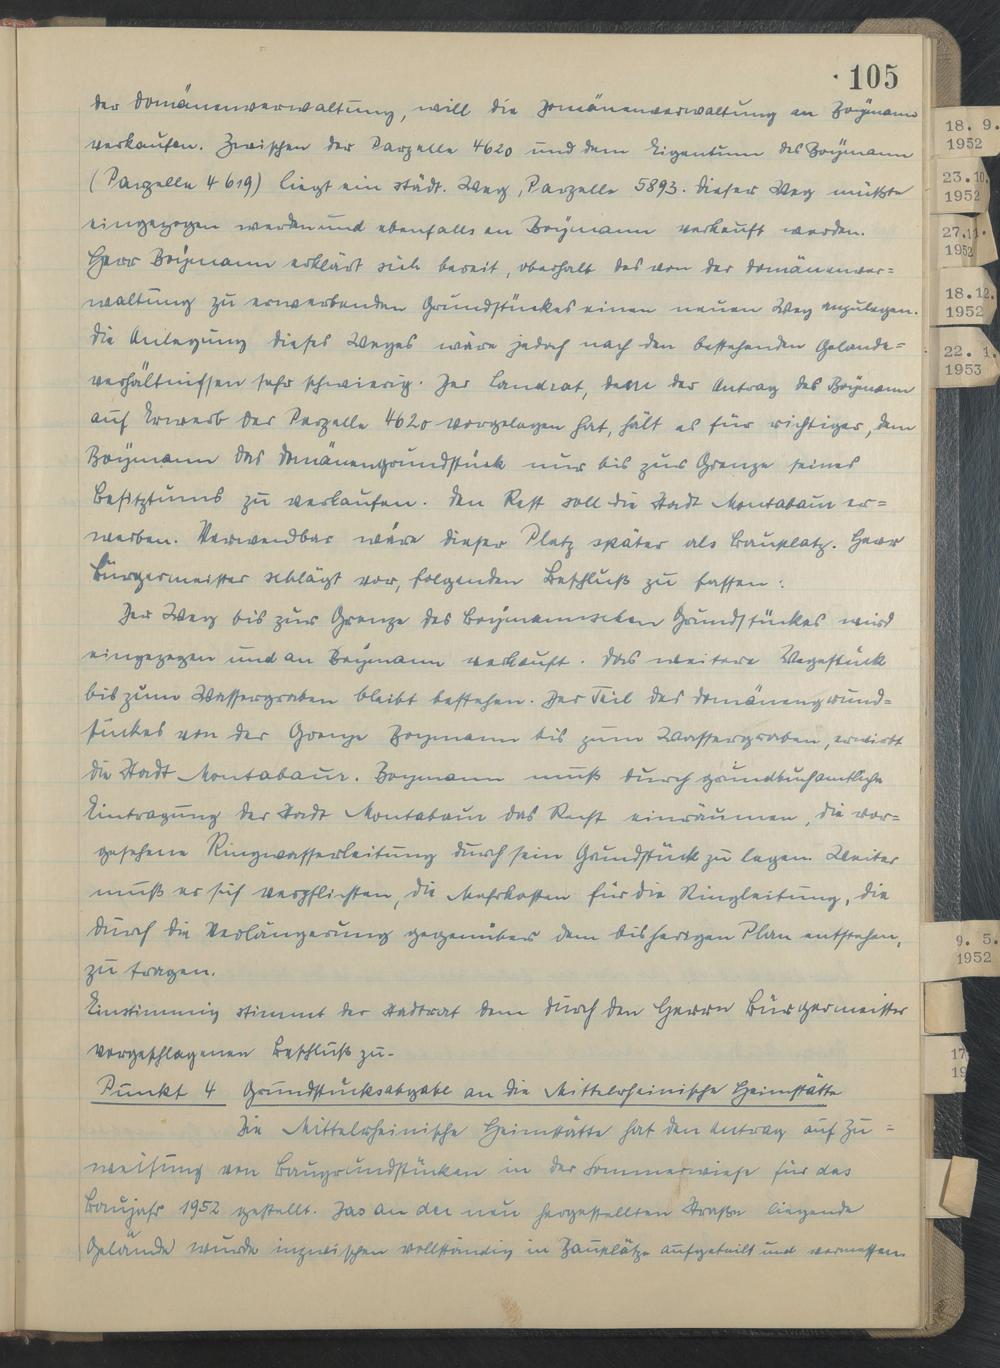 105
der Domänenverwaltung, will die Domänenverwaltung an Boymann
verkaufen. Zwischen der Parzelle 4620 und dem Eigentum des Boymann
(Parzelle 4619) liegt ein städt. Weg, Parzelle 5893. Dieser Weg müßte
eingezogen werden und ebenfalls an Boymann verkauft werden.
Herr Boymann erklärt sich bereit, oberhalb des von der Domänenver=
waltung zu erwerbenden Grundstückes einen neuen Weg anzulegen.
Die Anlegung dieses Weges wäre jedoch nach den bestehenden Gelände=
verhältnissen sehr schwierig. Der Landrat, dem der Antrag des Boymann
auf Erwerb der Parzelle 4620 vorgelegen hat, hält es für richtiger, dem
Boymann das Domänengrundstück nur bis zur Grenze seines
Besitztums zu verkaufen. Den Rest soll die Stadt Montabaur er=
werben. Verwendbar wäre dieser Platz später als Bauplatz. Herr
Bürgermeister schlägt vor, folgenden Beschluß zu fassen:
Der Weg bis zur Grenze des Boymannschen Grundstückes wird
eingezogen und an Boymann verkauft. Das weitere Wegestück
bis zum Wassergraben bleibt bestehen. Der Teil des Domänengrund=
stückes von der Grenze Boymann bis zum Wassergraben, erwirbt
die Stadt Montabaur. Boymann muß durch grundbuchamtliche
Eintragung der Stadt Montabaur das Recht einräumen, die vor=
gesehene Ringwasserleitung durch sein Grundstück zu legen. Weiter
muß er sich verpflichten, die Mehrkosten für die Ringleitung, die
durch die Verlängerung gegenüber dem bisherigen Plan entstehen,
zu tragen.
Einstimmig stimmt der Stadtrat dem durch den Herrn Bürgermeister
vorgeschlagenen Beschluß zu.
Punkt 4 Grundstücksabgabe an die Mittelrheinische Heimstätte
Die Mittelrheinische Heimstätte hat den Antrag auf Zu=
weisung von Baugrundstücken in der Sommerwiese für das
Baujahr 1952 gestellt. Das an der neu hergestellten Straße liegende
Gelände wurde inzwischen vollständig in Bauplätze aufgeteilt und vermessen.
18. 9.
1952
23.10.
1952
27.11.
1952
18.12.
1952
22. 1.
1953
9. 5.
1952
17
19